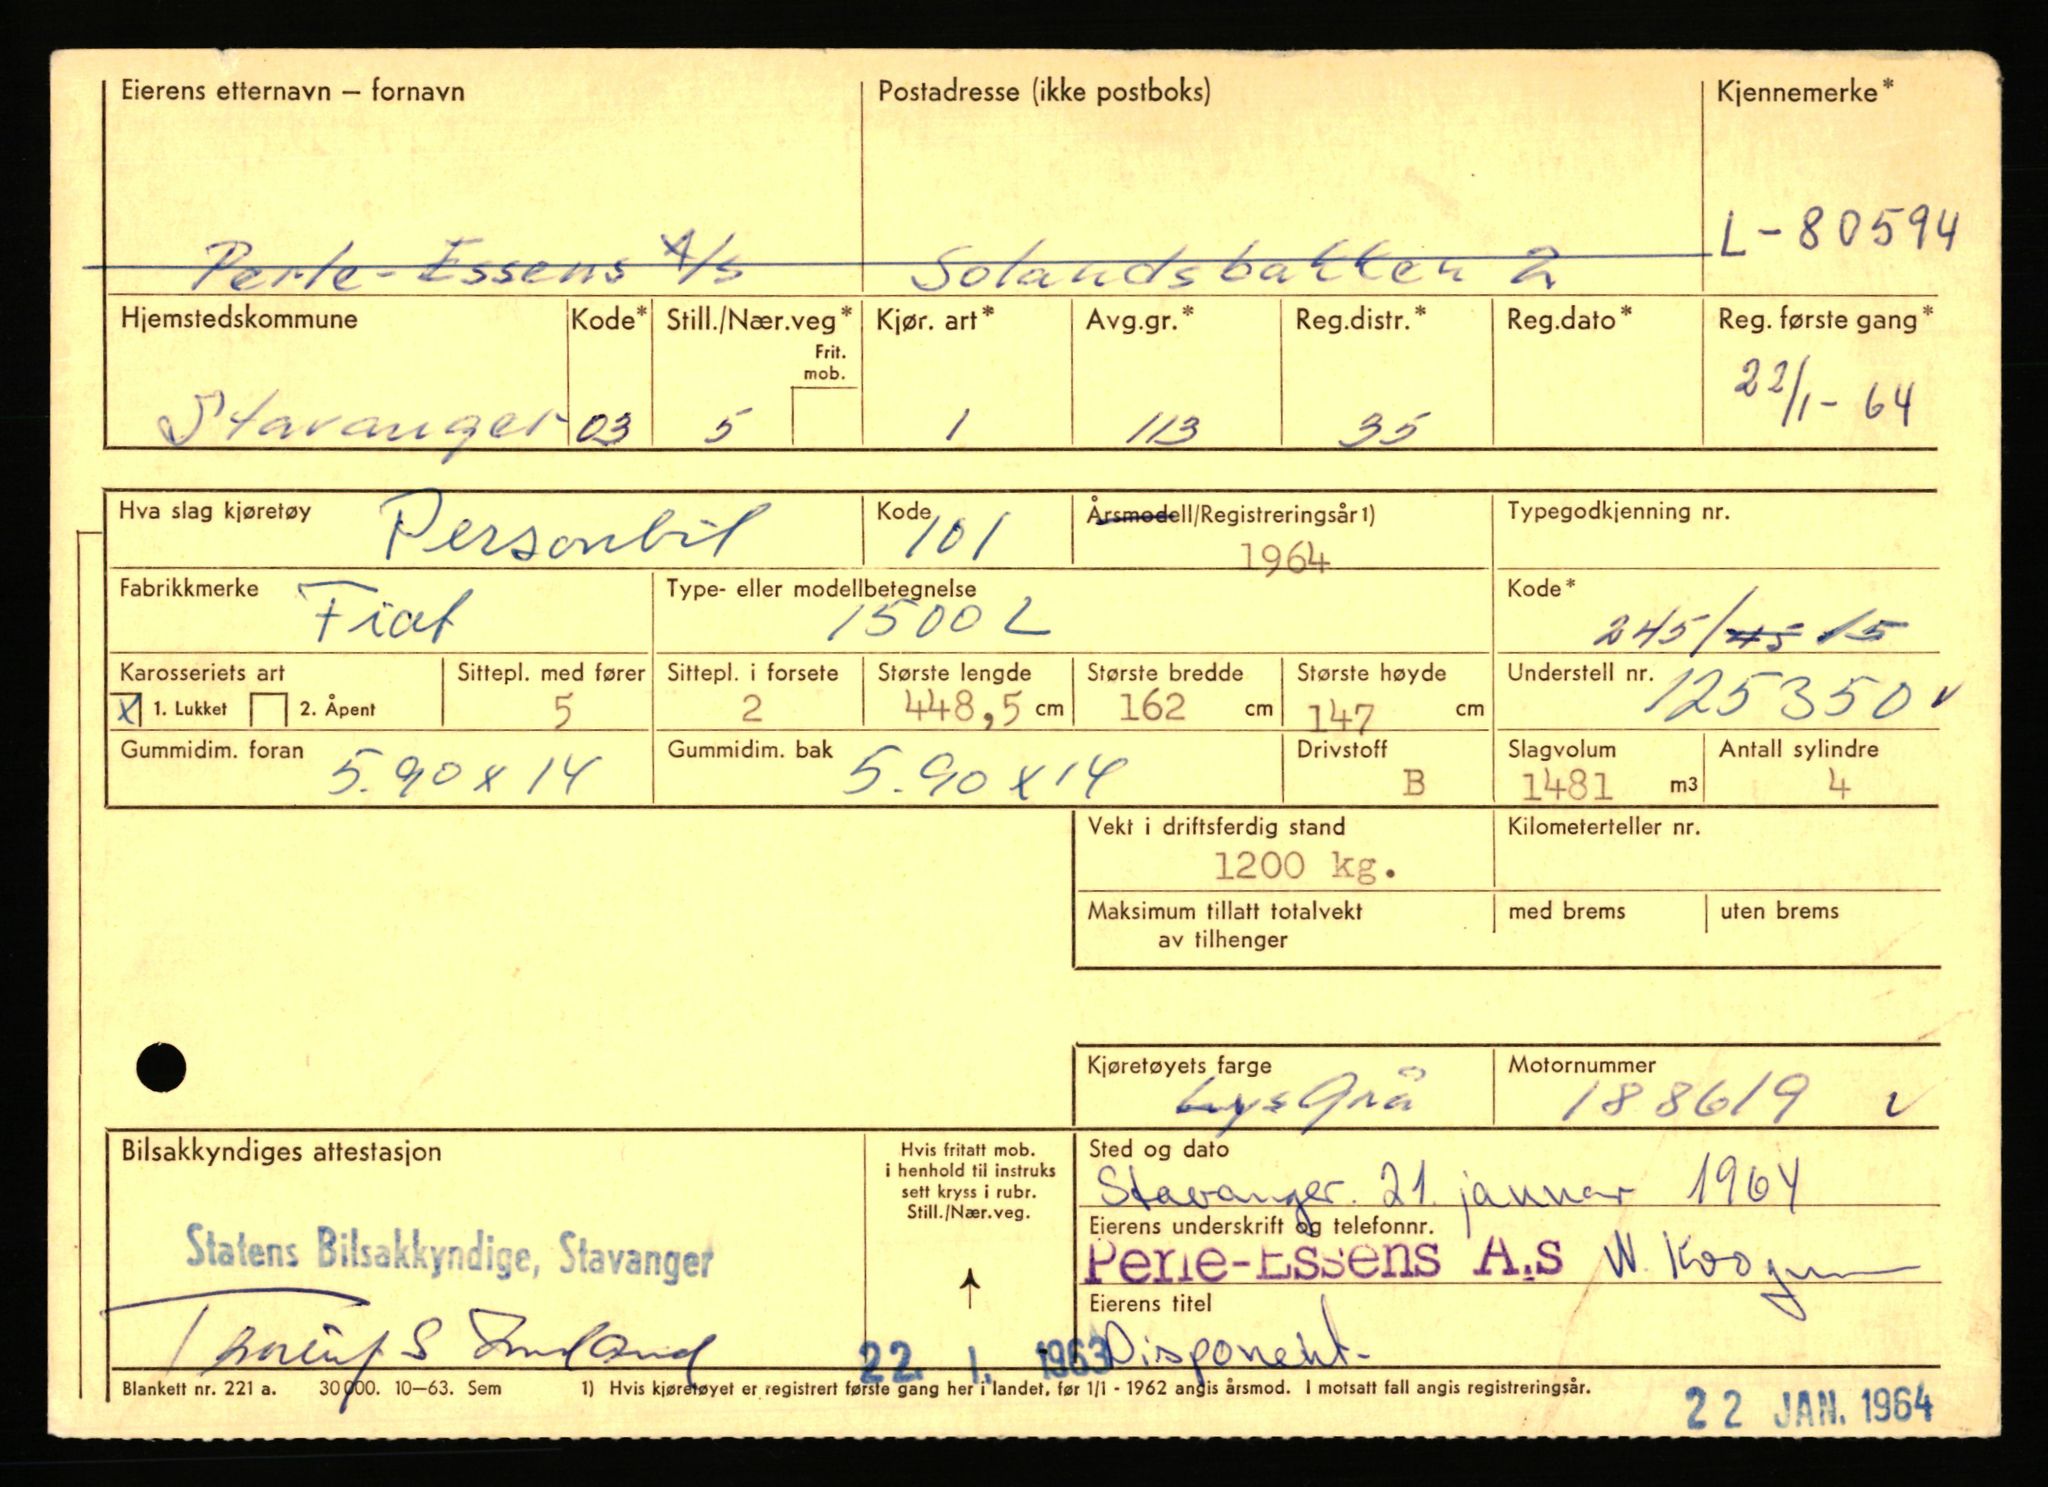 Eierens etternavn – fornavn Postadresse (ikke postboks) Kjennemerke*
Perle-Essens A/s Solandsbakken 2 L-80594
Hjemstedskommune Kode* Still./Nær.veg* Kjør. art* Avg.gr.* Reg.distr.* Reg.dato* Reg. første gang*
Frit.
mob.
Stavanger 03 5 1 113 35 22/1-64
Hva slag kjøretøy Personbil Kode 101 Årsmodell/Registreringsår 1) Typegodkjenning nr.
1964
Fabrikkmerke Fiat Type- eller modellbetegnelse Kode*
1500 L 245/45 15
Karosseriets art Sittepl. med fører Sittepl. i forsete Største lengde Største bredde Største høyde Understell nr.
x 1. Lukket 2. Åpent 5 2 448,5 cm 162 cm 147 cm 125350 v
Gummidim. foran Gummidim. bak Drivstoff Slagvolum Antall sylindre
5.90 x 14 5.90 x 14 B 1481 m3 4
Vekt i driftsferdig stand Kilometerteller nr.
1200 kg.
Maksimum tillatt totalvekt med brems uten brems
av tilhenger
Kjøretøyets farge Motornummer
Lys Grå 188619 v
Bilsakkyndiges attestasjon Hvis fritatt mob. Sted og dato
i henhold til instruks
sett kryss i rubr.
Still./Nær.veg.
Stavanger. 21. januar 1964
Eierens underskrift og telefonnr.
Statens Bilsakkyndige, Stavanger
Perle-Essens A.s W.
Eierens titel
S
22. 1. 1963 Disponent-
Blankett nr. 221 a. 30 000. 10–63. Sem 1) Hvis kjøretøyet er registrert første gang her i landet, før 1/1 - 1962 angis årsmod. I motsatt fall angis registreringsår.
22 JAN. 1964